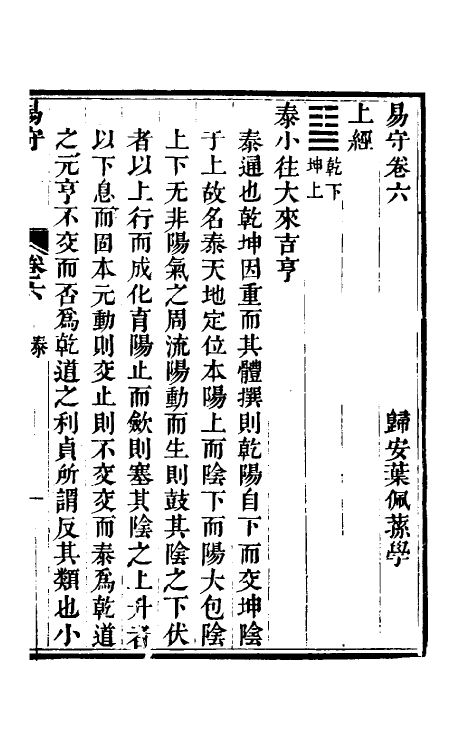 易守卷六
歸安葉佩蓀學
上經
䷊乾下坤上
泰小往大來吉亨
泰通也乾坤因重而其體撰則乾陽自下而交坤陰
于上故名泰天地定位本陽上而陰下而陽大包陰
上下无非陽氣之周流陽動而生則鼓其陰之下伏
者以上行而成化育陽止而斂則塞其陰之上升者
以下息而固本元動則交止則不交交而泰爲乾道
之元亨不交而否爲乾道之利貞所謂反其類也小
易守
卷六
泰
一